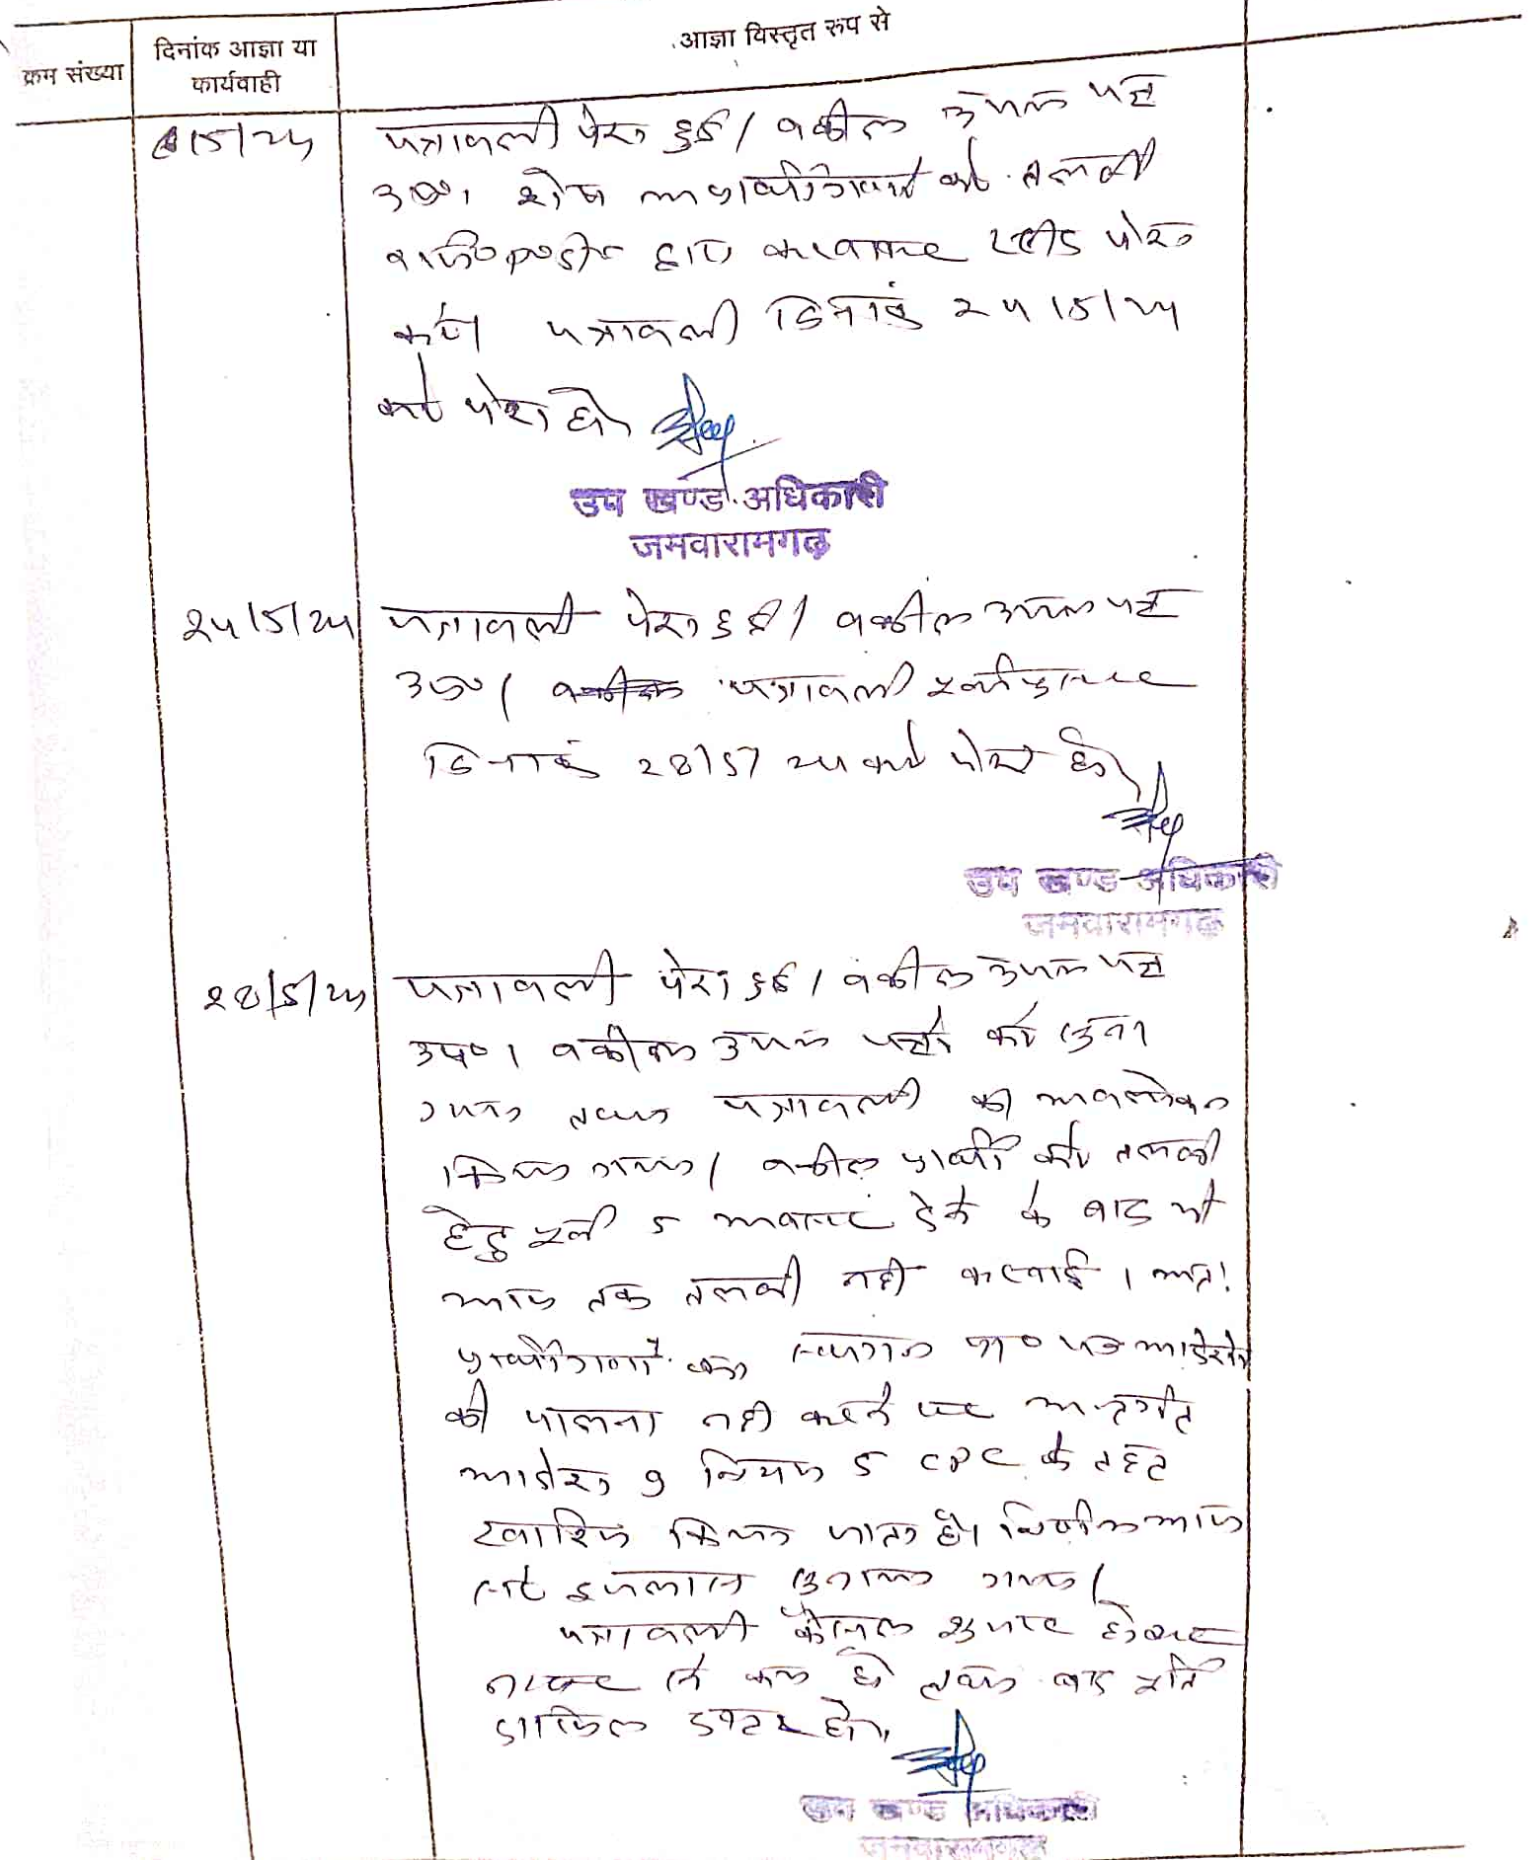 क्रम संख्या
दिनांक आज्ञा या
कार्यवाही
आज्ञा विस्तृत रूप से
पत्रावली पेश हुई। वकील उभय पक्ष
उप०। शेष अप्रार्थीगणों की तलबी
द्वारा करवाकर पेश
करें। पत्रावली दिनांक २५/5/२५
को पेश हो
उप खण्ड अधिकारी
जमवारामगढ़
२५/5/२५
पत्रावली पेश हुई। वकील उभय पक्ष
उप०। पत्रावली
दिनांक २8/5/२५ को पेश हो
उप खण्ड अधिकारी
जमवारामगढ़
२8/5/२५
पत्रावली पेश हुई। वकील उभय पक्ष
उप०। वकील उभय पक्षों को सुना
गया तथा पत्रावली का अवलोकन
किया गया। वकील प्रार्थी को तलबी
हेतु 5 अवसर देने के बाद भी
आज तक तलबी नहीं करवाई। अतः
प्रार्थीगणों का स्थगन प्रा० पत्र आदेशों
की पालना नहीं करने पर अन्तर्गत
आदेश 9 नियम 5 CPC के तहत
खारिज किया जाता है। निर्णय आज
सरे इजलास सुनाया गया।
पत्रावली फैसल शुमार होकर
नम्बर से कम हो तथा बाद
दाखिल दफ्तर हो।
उप खण्ड अधिकारी
जमवारामगढ़